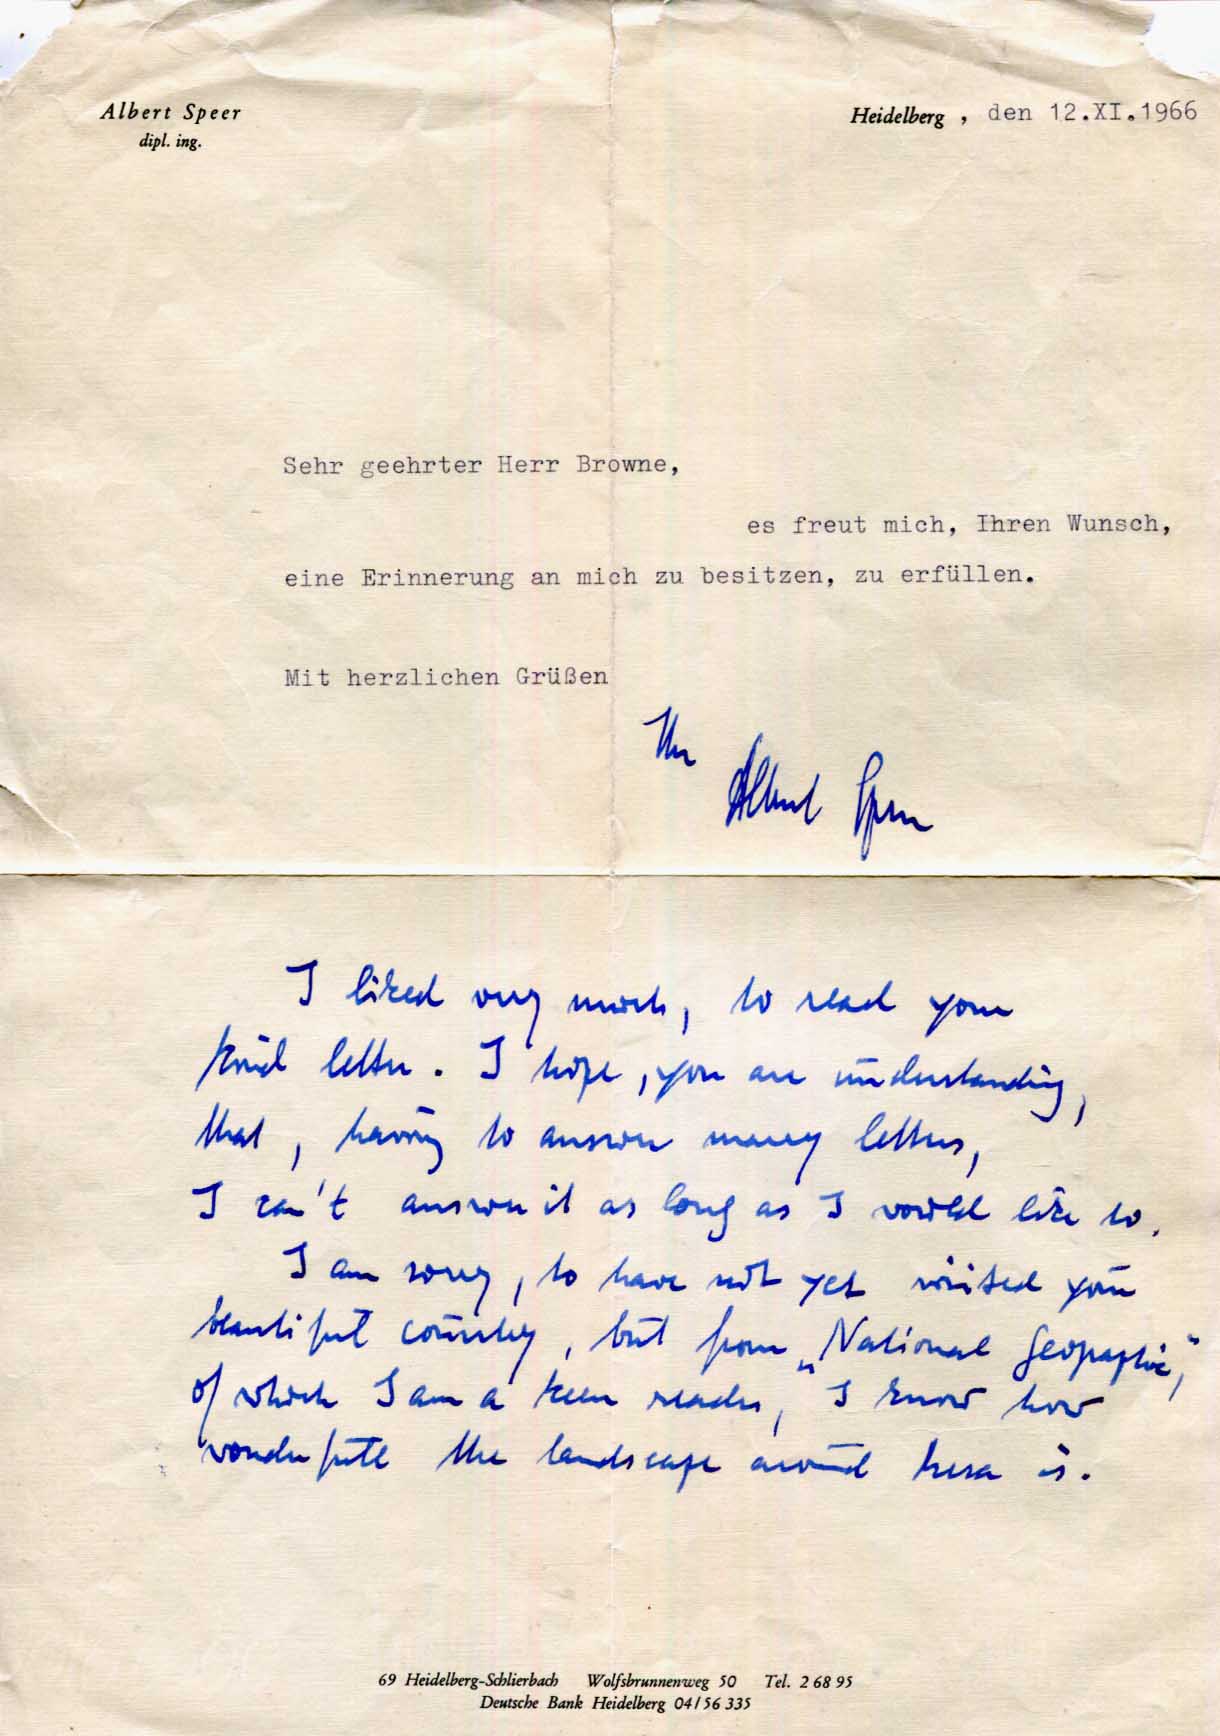 Albert Speer
dipl. ing.
Heidelberg , den 12.XI.1966
Sehr geehrter Herr Browne,
es freut mich, Ihren Wunsch,
eine Erinnerung an mich zu besitzen, zu erfüllen.
Mit herzlichen Grüßen
Ihr
Albert Speer
I liked very much, to read your
kind letter. I hope, you are understanding,
that, having to answer many letters,
I can't answer it as long as I would like to.
I am sorry, to have not yet visited your
beautiful country, but from „National Geographic",
of which I am a keen reader, I know how
wonderfull the landscape around is.
69 Heidelberg-Schlierbach Wolfsbrunnenweg 50 Tel. 2 68 95
Deutsche Bank Heidelberg 04/56 335